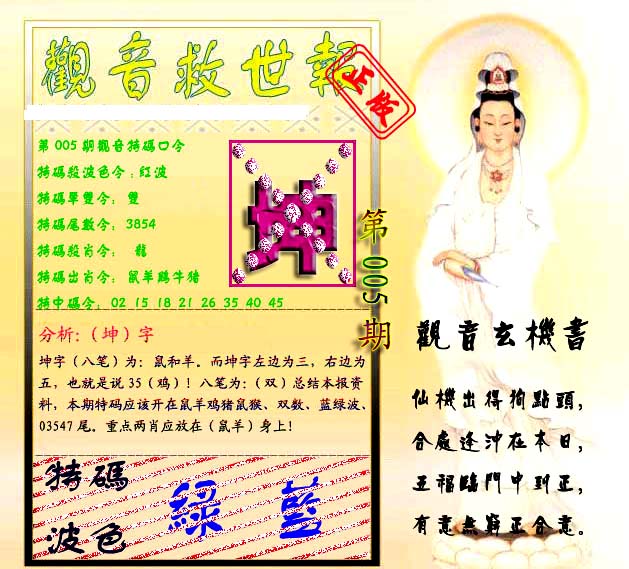 觀音救世報
正版
第 005 期觀音特碼口令
特碼殺波色令:紅波
特碼單雙令: 雙
特碼尾數令: 3854
特碼殺肖令: 龍
特碼出肖令: 鼠羊鷄牛猪
特中碼令: 02 15 18 21 26 35 40 45
坤
第 005 期
分析:(坤)字
坤字(八笔)为:鼠和羊。而坤字左边为三,右边为
五,也就是说 35(鸡)!八笔为:(双)总结本报资
料,本期特码应该开在鼠羊鸡猪鼠猴、双数、蓝绿波、
03547 尾。重点两肖应放在(鼠羊)身上!
特碼
波色
綠 藍
觀音玄機書
仙機出得狗點頭,
合處逢沖在本日,
五福臨門中到正,
有意無
正合意。